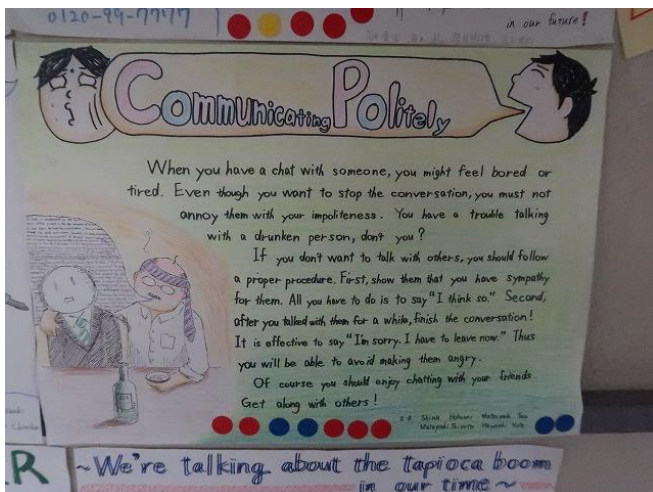 0120-99-7777
in our future!
Communicating Politely
When you have a chat with someone, you might feel bored or
tired. Even though you want to stop the conversation, you must not
annoy them with your impoliteness. You have a trouble talking
with a drunken person, don't you?
If you don't want to talk with others, you should follow
a proper procedure. First, show them that you have sympathy
for them. All you have to do is to say "I think so." Second,
after you talked with them for a while, finish the conversation!
It is effective to say "I'm sorry. I have to leave now." Thus
you will be able to avoid making them angry.
Of course you should enjoy chatting with your friends.
Get along with others!
R
~We're talking about the tapioca boom
in our time~